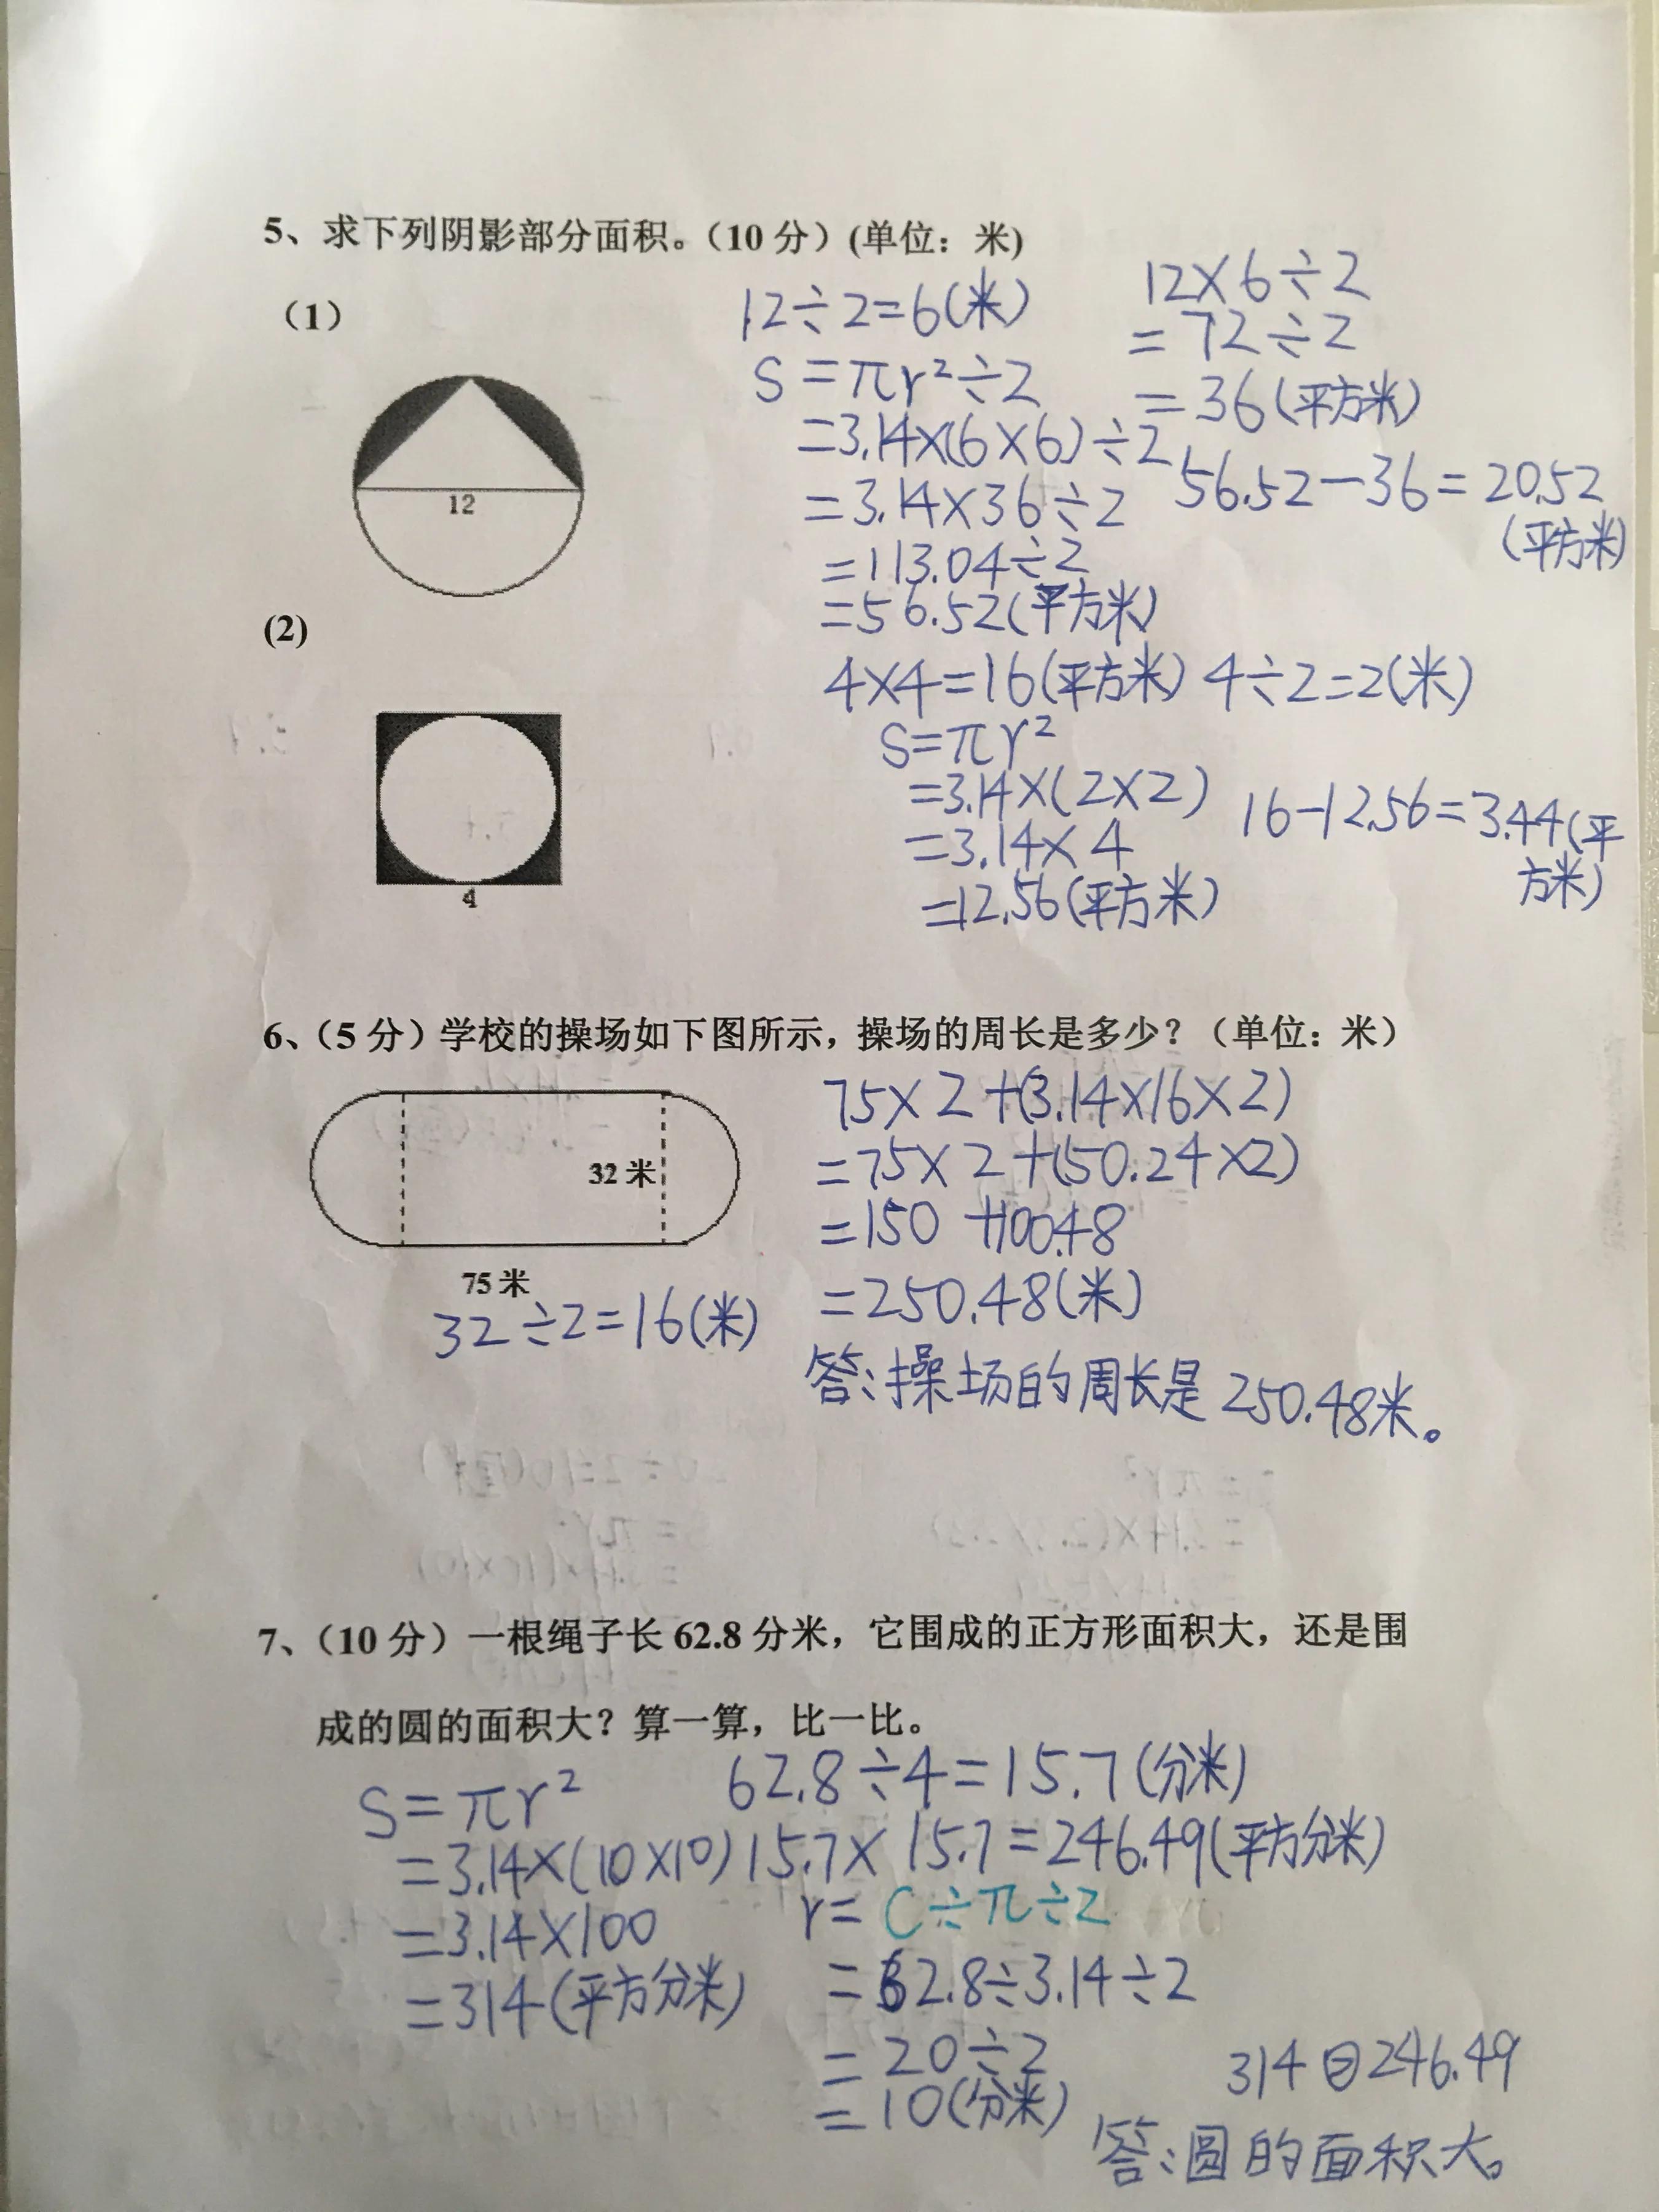 5、求下列阴影部分面积。（10 分）(单位：米)
（1）
12
12÷2=6(米)
S=πr²÷2
=3.14×(6×6)÷2
=3.14×36÷2
=113.04÷2
=56.52(平方米)
12×6÷2
=72÷2
=36(平方米)
56.52-36=20.52
(平方米)
(2)
4
4×4=16(平方米) 4÷2=2(米)
S=πr²
=3.14×(2×2)
=3.14×4
=12.56(平方米)
16-12.56=3.44(平
方米)
6、（5 分）学校的操场如下图所示，操场的周长是多少？（单位：米）
32 米
75 米
32÷2=16(米)
75×2+(3.14×16×2)
=75×2+(50.24×2)
=150+100.48
=250.48(米)
答:操场的周长是250.48米。
7、（10 分）一根绳子长 62.8 分米，它围成的正方形面积大，还是围
成的圆的面积大？算一算，比一比。
S=πr²
=3.14×(10×10)
=3.14×100
=314(平方分米)
62.8÷4=15.7(分米)
15.7×15.7=246.49(平方分米)
r=C÷π÷2
=62.8÷3.14÷2
=20÷2
=10(分米)
314 246.49
答:圆的面积大。